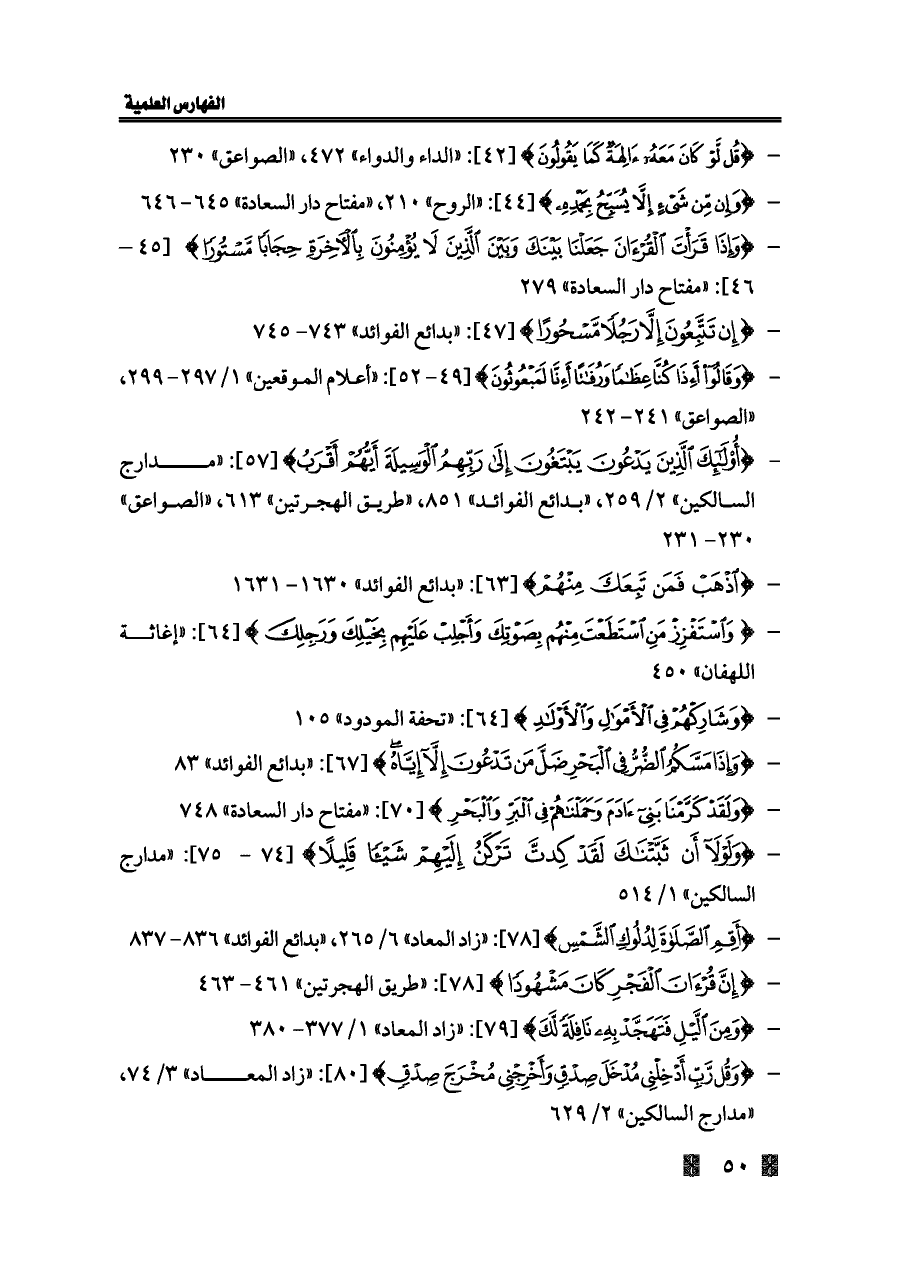 الفهارس العلمية
- ﴿قُل لَّوْ كَانَ مَعَهُۥٓ ءَالِهَةٌ كَمَا يَقُولُونَ﴾ [٤٢]: «الداء والدواء» ٤٧٢، «الصواعق» ٢٣٠
- ﴿وَإِن مِّن شَيْءٍ إِلَّا يُسَبِّحُ بِحَمْدِهِۦ﴾ [٤٤]: «الروح» ٢١٠، «مفتاح دار السعادة» ٦٤٥-٦٤٦
- ﴿وَإِذَا قَرَأْتَ الْقُرْءَانَ جَعَلْنَا بَيْنَكَ وَبَيْنَ الَّذِينَ لَا يُؤْمِنُونَ بِالْأَخِرَةِ حِجَابًا مَّسْتُورًا﴾ [٤٥ -
٤٦]: «مفتاح دار السعادة» ٢٧٩
- ﴿إِن تَتَّبِعُونَ إِلَّا رَجُلًا مَّسْحُورًا﴾ [٤٧]: «بدائع الفوائد» ٧٤٣-٧٤٥
- ﴿وَقَالُوٓا۟ أَءِذَا كُنَّا عِظَٰمًا وَرُفَٰتًا أَءِنَّا لَمَبْعُوثُونَ﴾ [٤٩-٥٢]: «أعلام الموقعين» ١/ ٢٩٧-٢٩٩،
«الصواعق» ٢٤١-٢٤٢
- ﴿أُو۟لَٰٓئِكَ الَّذِينَ يَدْعُونَ يَبْتَغُونَ إِلَىٰ رَبِّهِمُ الْوَسِيلَةَ أَيُّهُمْ أَقْرَبُ﴾ [٥٧]: «مدارج
السالكين» ٢/ ٢٥٩، «بدائع الفوائد» ٨٥١، «طريق الهجرتين» ٦١٣، «الصواعق»
٢٣٠-٢٣١
- ﴿اذْهَبْ فَمَن تَبِعَكَ مِنْهُمْ﴾ [٦٣]: «بدائع الفوائد» ١٦٣٠-١٦٣١
- ﴿وَاسْتَفْزِزْ مَنِ اسْتَطَعْتَ مِنْهُم بِصَوْتِكَ وَأَجْلِبْ عَلَيْهِم بِخَيْلِكَ وَرَجِلِكَ﴾ [٦٤]: «إغاثة
اللهفان» ٤٥٠
- ﴿وَشَارِكْهُمْ فِي الْأَمْوَٰلِ وَالْأَوْلَٰدِ﴾ [٦٤]: «تحفة المودود» ١٠٥
- ﴿وَإِذَا مَسَّكُمُ الضُّرُّ فِي الْبَحْرِ ضَلَّ مَن تَدْعُونَ إِلَّآ إِيَّاهُ﴾ [٦٧]: «بدائع الفوائد» ٨٣
- ﴿وَلَقَدْ كَرَّمْنَا بَنِيٓ ءَادَمَ وَحَمَلْنَٰهُمْ فِي الْبَرِّ وَالْبَحْرِ﴾ [٧٠]: «مفتاح دار السعادة» ٧٤٨
- ﴿وَلَوْلَآ أَن ثَبَّتْنَٰكَ لَقَدْ كِدتَّ تَرْكَنُ إِلَيْهِمْ شَيْـًٔا قَلِيلًا﴾ [٧٤ - ٧٥]: «مدارج
السالكين» ١/ ٥١٤
- ﴿أَقِمِ الصَّلَوٰةَ لِدُلُوكِ الشَّمْسِ﴾ [٧٨]: «زاد المعاد» ٦/ ٢٦٥، «بدائع الفوائد» ٨٣٦-٨٣٧
- ﴿إِنَّ قُرْءَانَ الْفَجْرِ كَانَ مَشْهُودًا﴾ [٧٨]: «طريق الهجرتين» ٤٦١-٤٦٣
- ﴿وَمِنَ الَّيْلِ فَتَهَجَّدْ بِهِۦ نَافِلَةً لَّكَ﴾ [٧٩]: «زاد المعاد» ١/ ٣٧٧-٣٨٠
- ﴿وَقُل رَّبِّ أَدْخِلْنِي مُدْخَلَ صِدْقٍ وَأَخْرِجْنِي مُخْرَجَ صِدْقٍ﴾ [٨٠]: «زاد المعاد» ٣/ ٧٤،
«مدارج السالكين» ٢/ ٦٢٩
٥٠